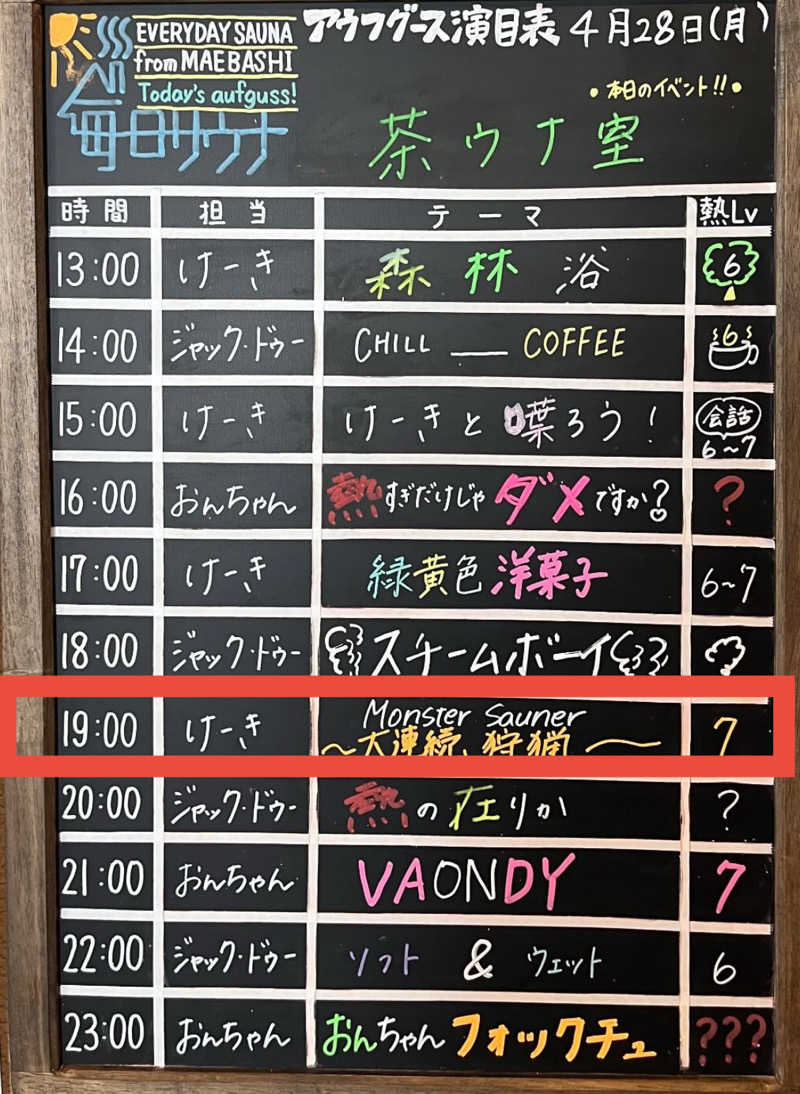 EVERYDAY SAUNA
from MAEBASHI
Today's aufguss!
毎日サウナ
アウフグース演目表 4月28日(月)
・本日のイベント!!・
茶ウナ室
時間 担当 テーマ 熱Lv
13:00 けーき 森林浴 6
14:00 ジャック・ドゥー CHILL __ COFFEE 6
15:00 けーき けーきと喋ろう! 会話 6~7
16:00 おんちゃん 熱すぎだけじゃダメですか? ?
17:00 けーき 緑黄色洋菓子 6~7
18:00 ジャック・ドゥー スチームボーイ
19:00 けーき Monster Sauner 7
~大連続、狩猟~
20:00 ジャック・ドゥー 熱の在りか ?
21:00 おんちゃん VAONDY 7
22:00 ジャック・ドゥー ソフト & ウェット 6
23:00 おんちゃん おんちゃんフォックチュ ???